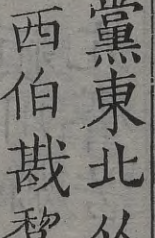 黨東北
西伯戡黎